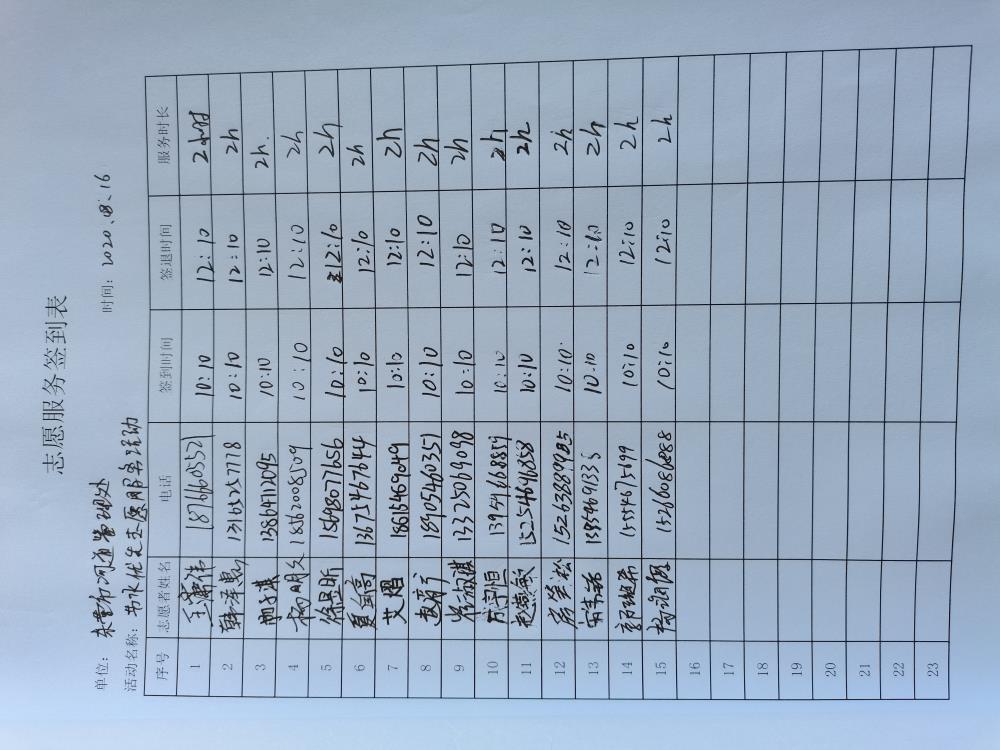 志愿服务签到表
单位: 东营市河道管理处 时间: 2020.08.16
活动名称: 节水优先志愿服务活动
序号 志愿者姓名 电话 签到时间 签退时间 服务时长
1 18766605521 10:10 12:10 2小时
2 13105257778 10:10 12:10 2h
3 13864712095 10:10 12:10 2h.
4 杨明久 18562008509 10:10 12:10 2h
5 徐显昕 15698077656 10:10 12:10 2h
6 13675467644 10:10 12:10 2h
7 艾熠 18615469049 10:10 12:10 2h
8 18905460351 10:10 12:10 2h
9 13325069098 10:10 12:10 2h
10 13954668859 10:10 12:10 2h
11 赵慧敏 15254696858 10:10 12:10 2h
12 15263889985 10:10 12:10 2h
13 10:10 12:10 2h
14 15554675699 10:10 12:10 2h
15 杨润桐 15266086888 10:10 12:10 2h
16
17
18
19
20
21
22
23